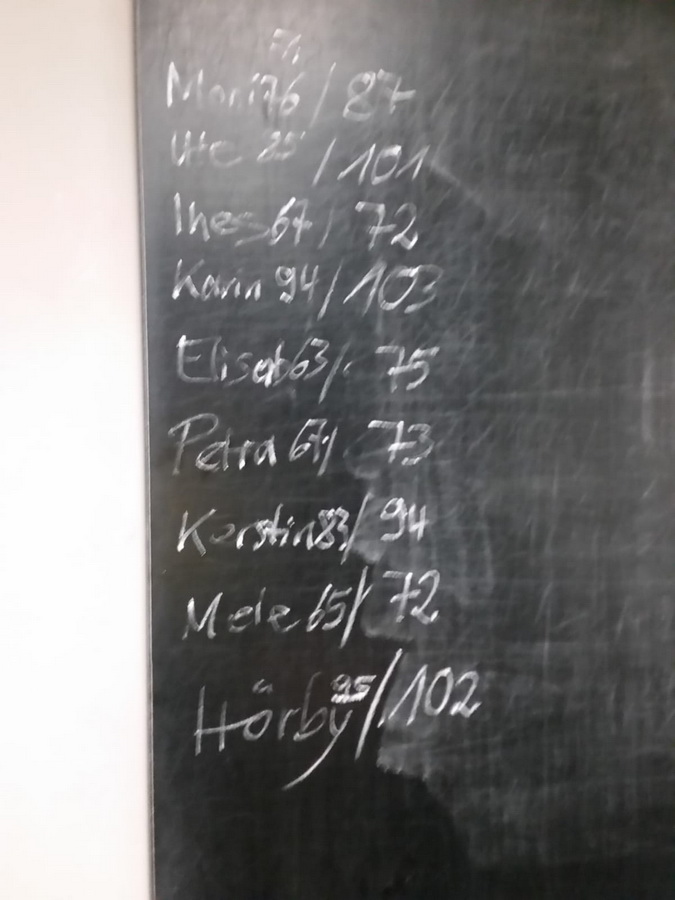 Moni 76 / 87
Ute 85 / 101
Ines 67 / 72
Karin 94 / 103
Elisab 63 / 75
Petra 67 / 73
Kerstin 83 / 94
Mele 65 / 72
Hörby 95 / 102